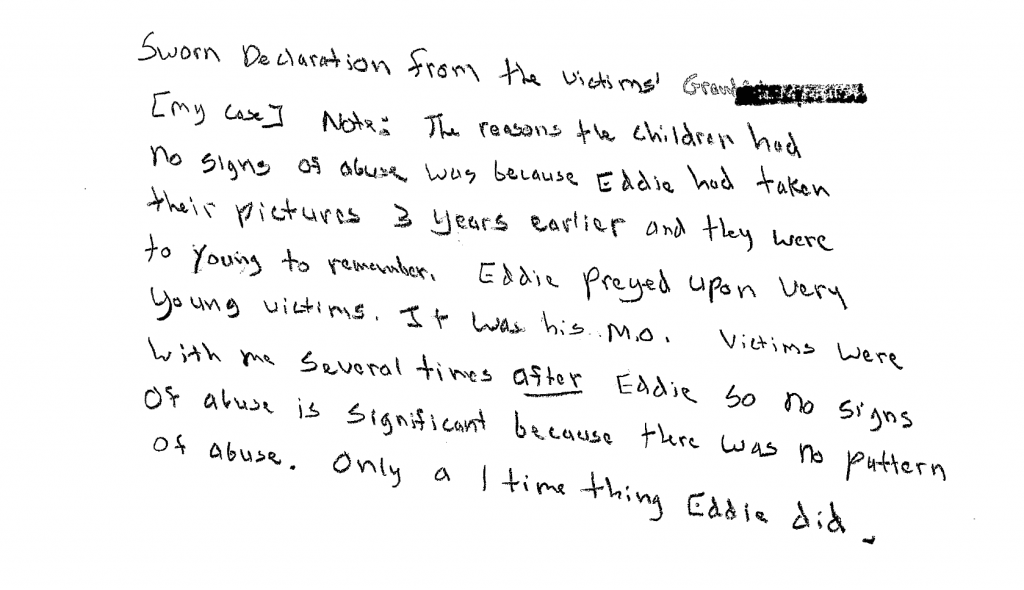 Sworn Declaration from the victims'
[my case] Note: The reasons the children had
no signs of abuse was because Eddie had taken
their pictures 3 years earlier and they were
to young to remember. Eddie preyed upon very
young victims. It was his M.O. Victims were
with me several times after Eddie so no signs
of abuse is significant because there was no pattern
of abuse. Only a 1 time thing Eddie did.